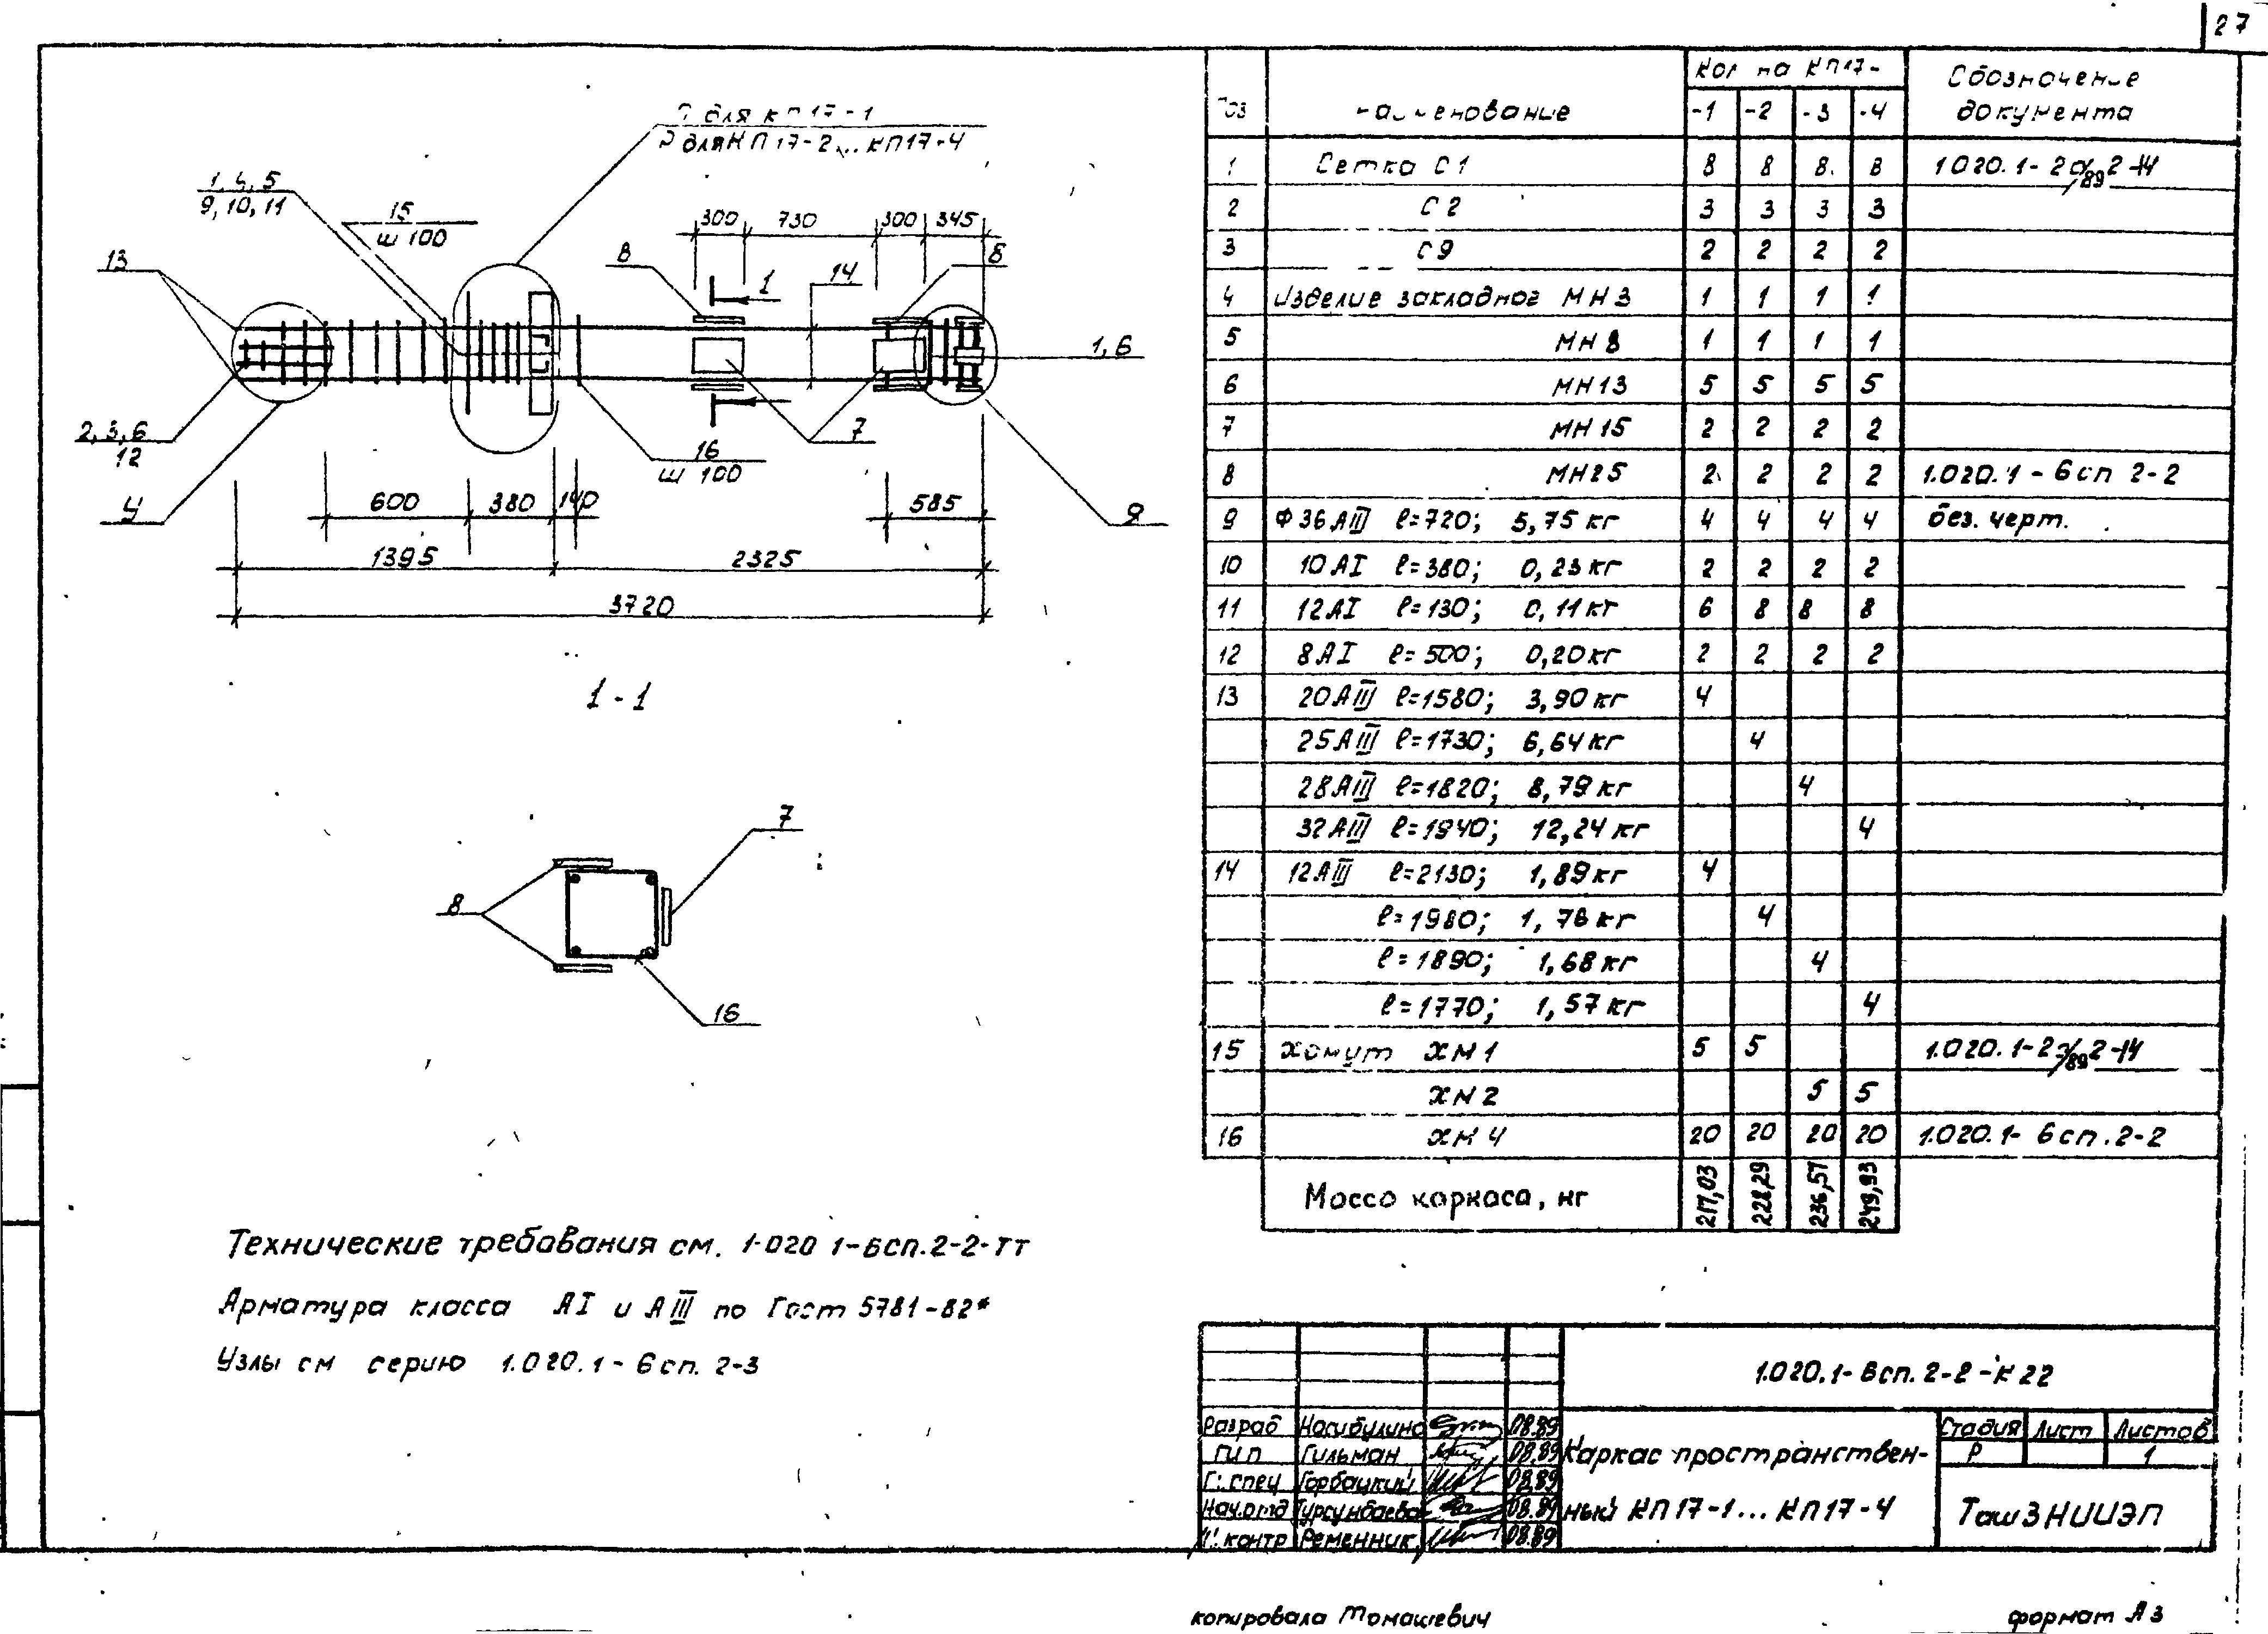 27
для КП17-1
для КП17-2... КП17-4
1, 4, 5
9, 10, 11
15
ш 100
300 730 300 345
13
8
1
14
8
1, 6
2, 3, 6
12
У
16
ш 100
7
9
600 380 140 585
1395 2325
3720
1-1
7
8
16
Технические требования см. 1.020 1-6сп.2-2-ТТ
Арматура класса АI и АIII по Гост 5781-82*
Узлы см серию 1.020.1-6сп. 2-3
Поз Наименование Кол на КП17- Обозначение документа
-1 -2 -3 -4
1 Сетка С1 8 8 8 8 1.020.1-2с/89 2-14
2 С2 3 3 3 3
3 С9 2 2 2 2
4 Изделие закладное МН3 1 1 1 1
5 МН8 1 1 1 1
6 МН13 5 5 5 5
7 МН15 2 2 2 2
8 МН25 2 2 2 2 1.020.1-6сп 2-2
9 Ф36АIII ℓ=720; 5,75кг 4 4 4 4 без. черт.
10 10АI ℓ=380; 0,23кг 2 2 2 2
11 12АI ℓ=130; 0,11кг 6 8 8 8
12 8АI ℓ=500; 0,20кг 2 2 2 2
13 20АIII ℓ=1580; 3,90кг 4
25АIII ℓ=1730; 6,64кг 4
28АIII ℓ=1820; 8,79кг 4
32АIII ℓ=1940; 12,24кг 4
14 12АIII ℓ=2130; 1,89кг 4
ℓ=1980; 1,76кг 4
ℓ=1890; 1,68кг 4
ℓ=1770; 1,57кг 4
15 Хомут ХМ1 5 5 1.020.1-2с/89 2-14
ХМ2 5 5
16 ХМ4 20 20 20 20 1.020.1-6сп.2-2
Масса каркаса, кг 217,03 228,29 236,57 249,93
1.020.1-6сп. 2-2-К22
Разраб Насибулина 08.89
ГИП Гильман 08.89
Гл. спец Горбацкий 08.89
Нач.отд Турсунбаева 08.89
Н. контр Ременник 08.89
Каркас пространствен-
ный КП17-1... КП17-4
Стадия Лист Листов
Р 1
ТашЗНИИЭП
копировала Томашевич
формат А3